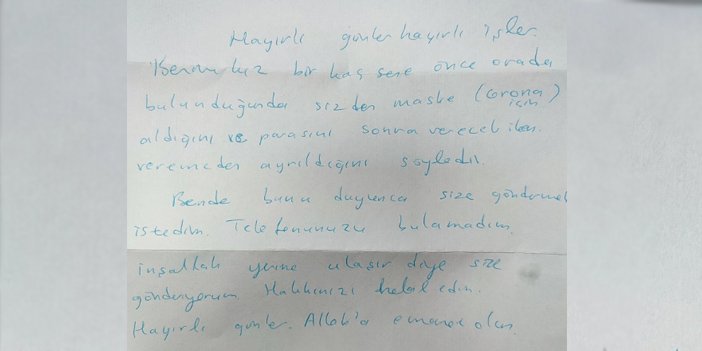 Hayırlı günler hayırlı işler.
Benim kız bir kaç sene önce orada
bulunduğunda sizden maske (corona için)
aldığını ve parasını sonra verecek iken.
veremeden ayrıldığını söyledi.
Bende bunu duyunca size göndermek
istedim. Telefonunuzu bulamadım.
inşallah yerine ulaşır diye size
gönderiyorum. Hakkınızı helal edin.
Hayırlı günler. Allah'a emanet olun.